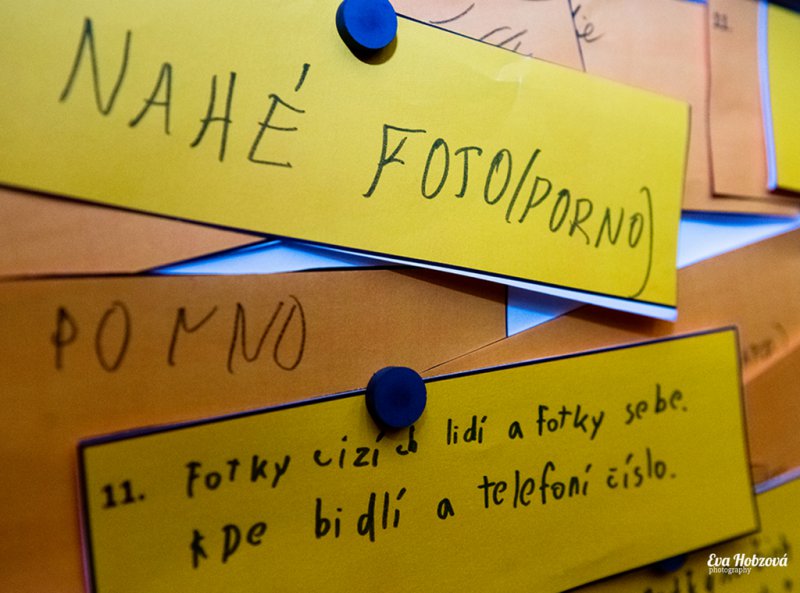 11.
NAHÉ FOTO(PORNO)
PORNO
11. Fotky cizích lidí a fotky sebe.
kde bidlí a telefoní číslo.
Eva Hobzová
photography